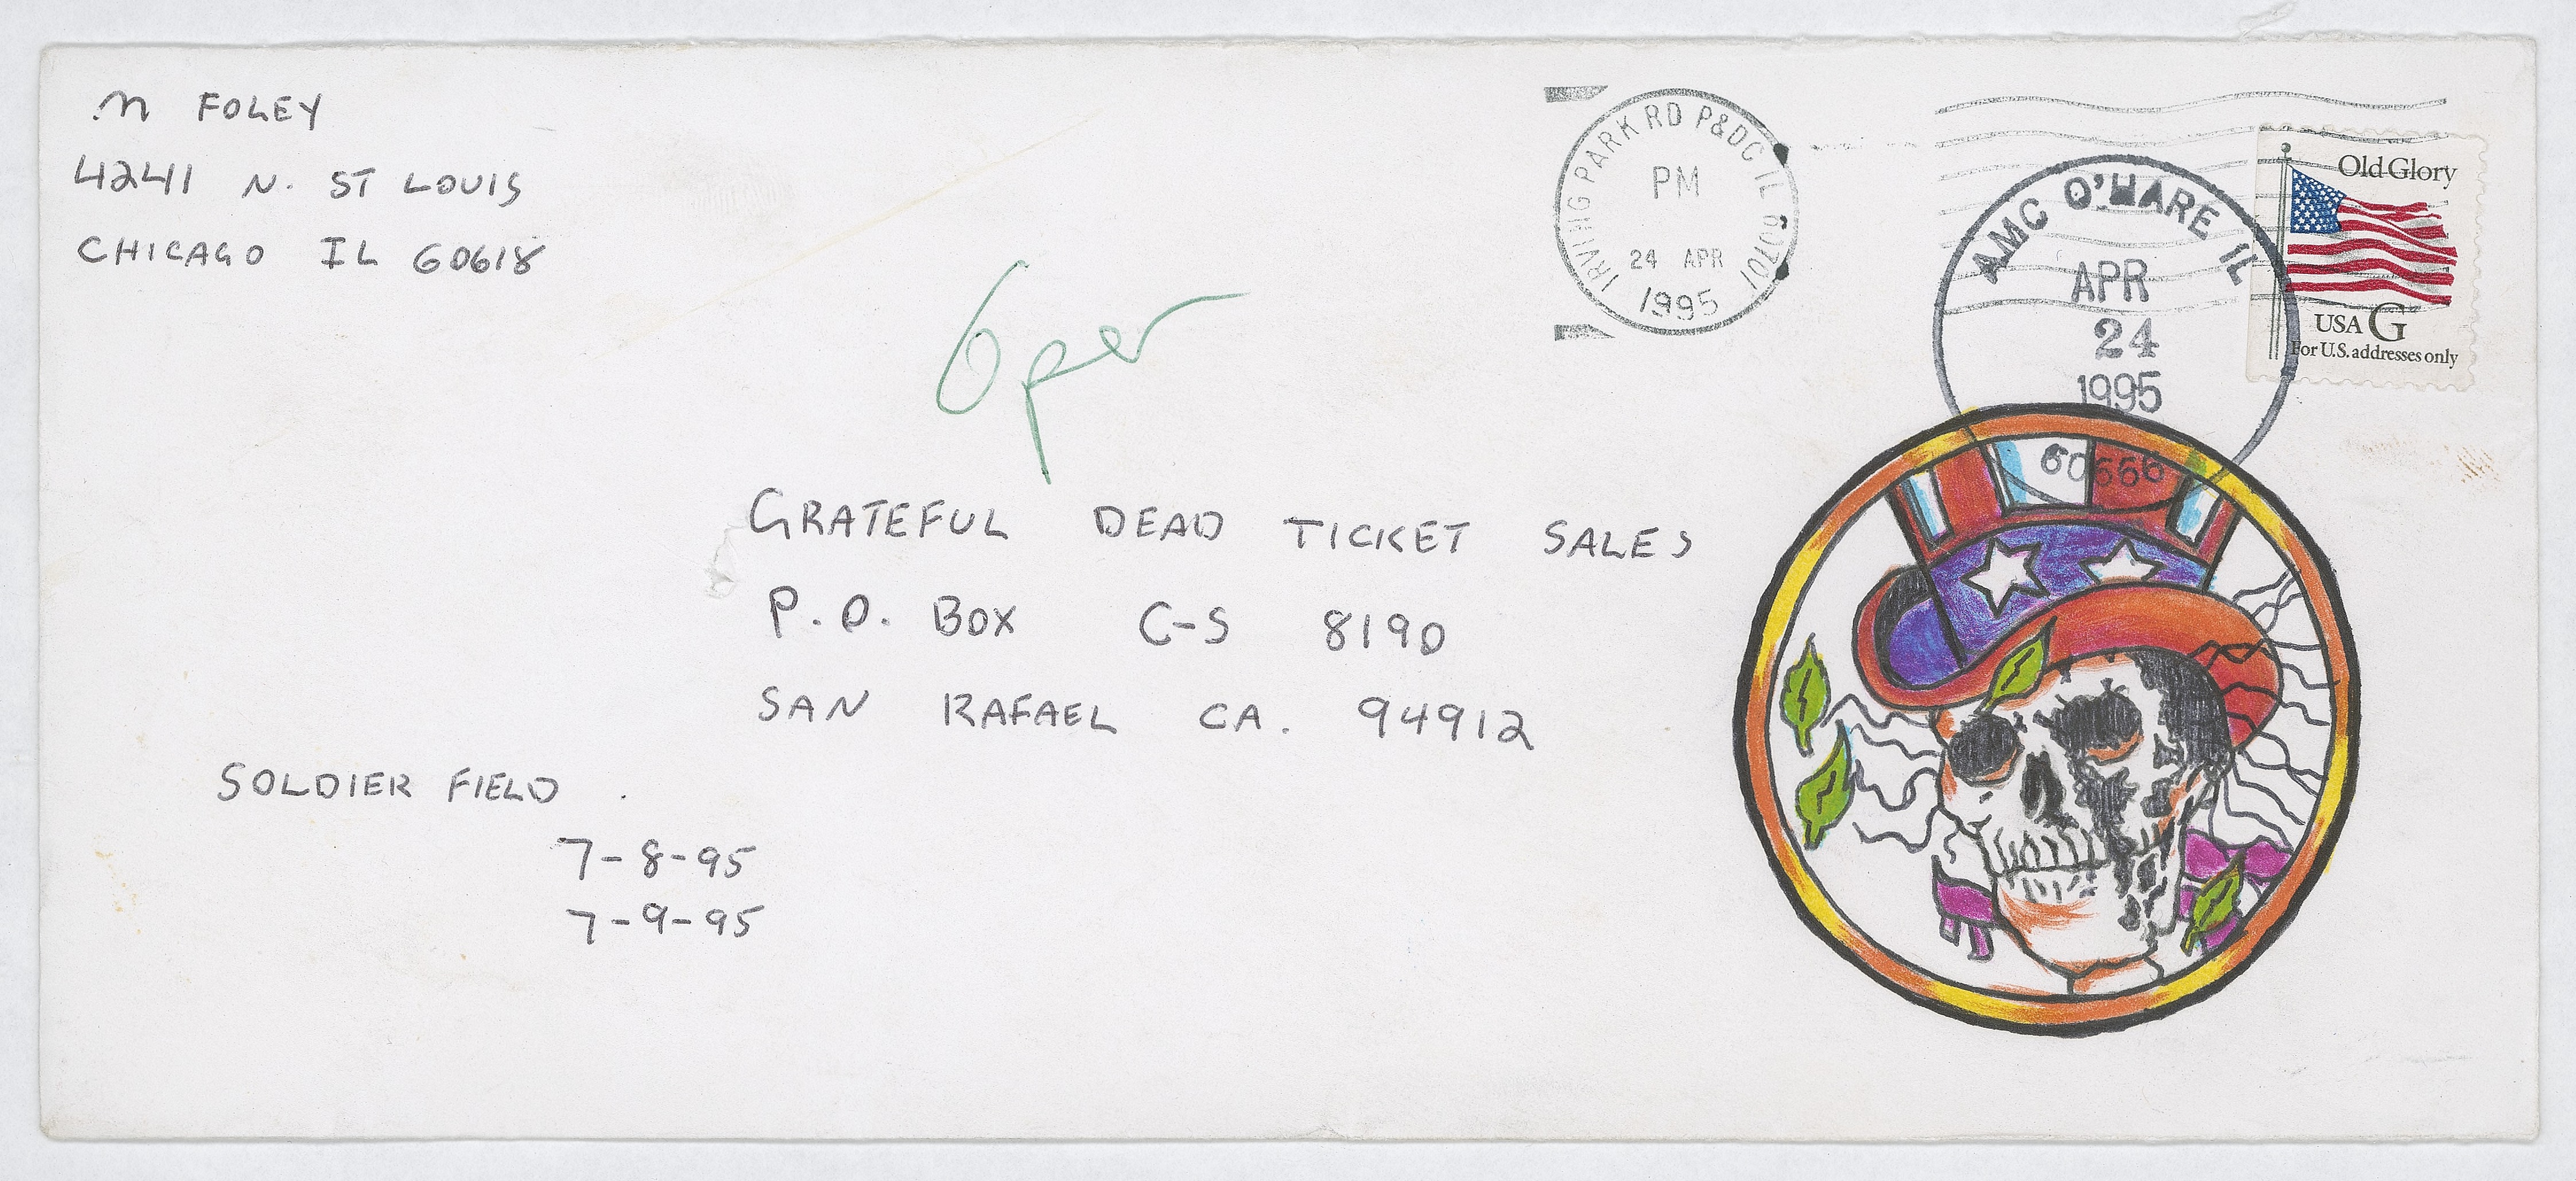 M FOLEY
4241 N. ST LOUIS
CHICAGO IL 60618
IRVING PARK RD P&DC IL 60701
PM
24 APR
1995
AMC O'HARE IL
APR
24
1995
60666
Old Glory
USA G
For U.S. addresses only
6per
GRATEFUL DEAD TICKET SALES
P.O. BOX C-S 8190
SAN RAFAEL CA. 94912
SOLDIER FIELD
7-8-95
7-9-95